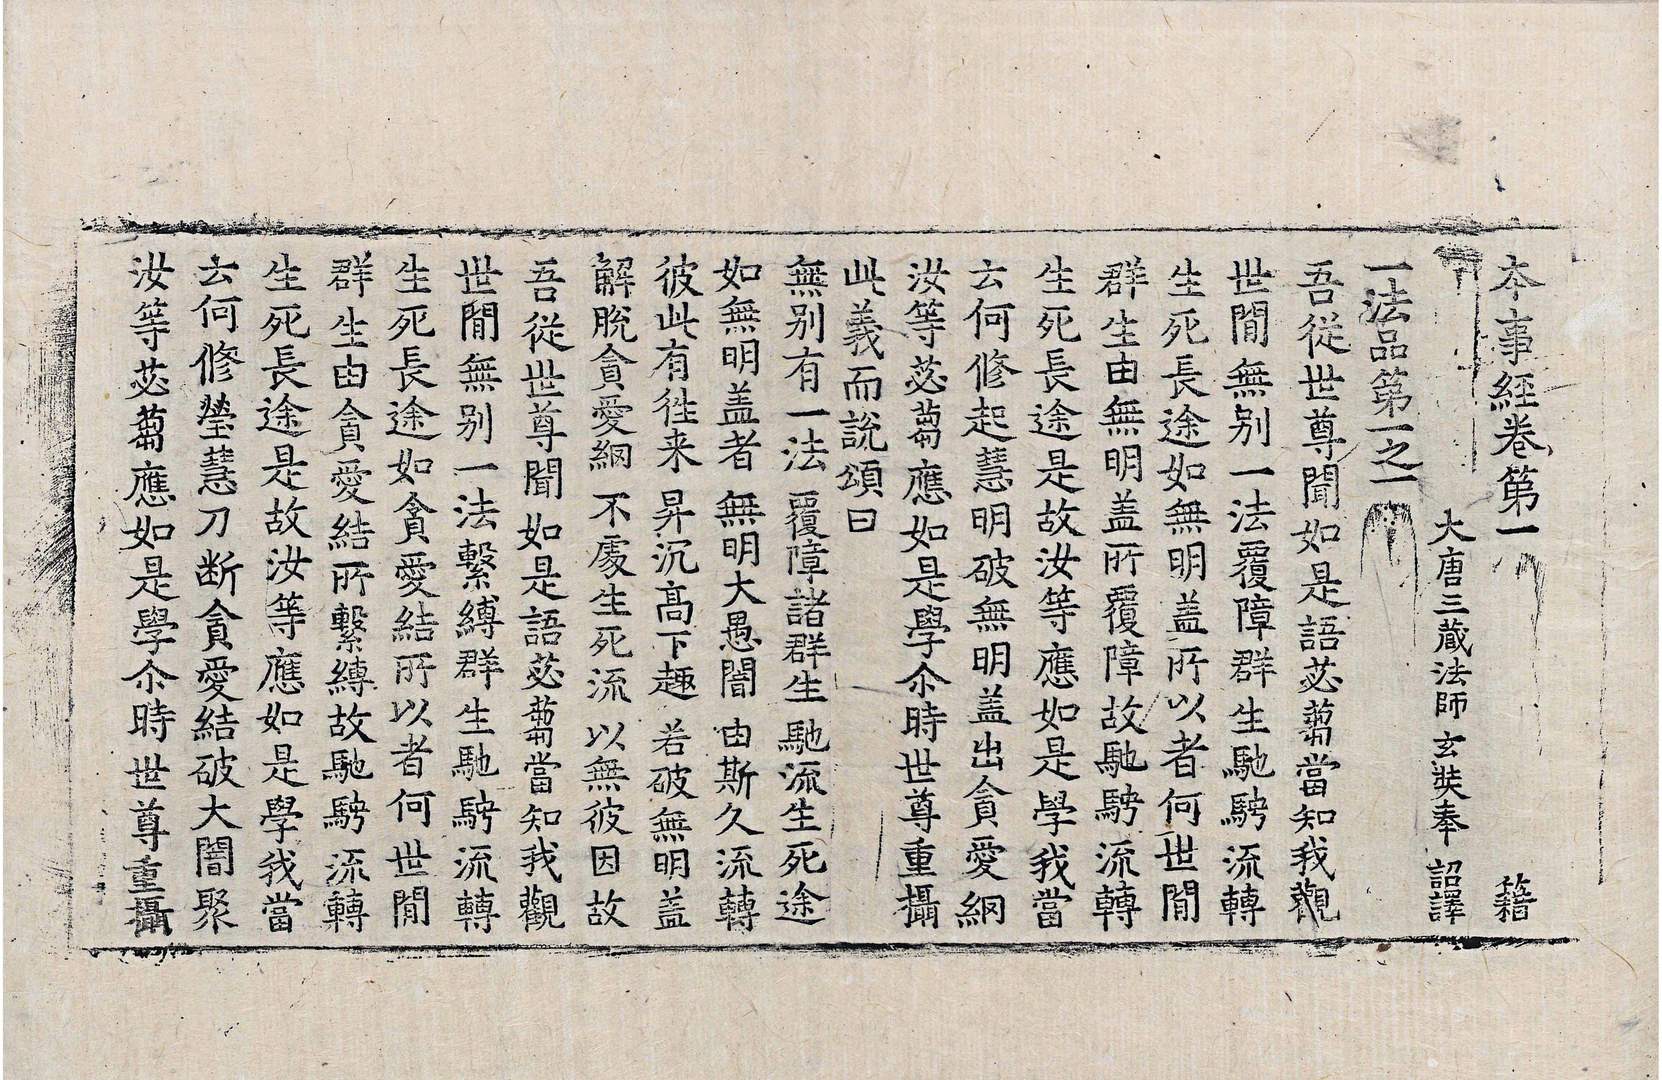 本事經卷第一 籍
大唐三藏法師玄奘奉 詔譯
一法品第一之一
吾從世尊聞如是語苾蒭當知我觀
世閒無別一法覆障群生馳騁流轉
生死長途如無明盖所以者何世閒
群生由無明盖所覆障故馳騁流轉
生死長途是故汝等應如是學我當
云何修起慧明破無明盖出貪愛網
汝等苾蒭應如是學尒時世尊重攝
此義而說頌曰
無別有一法 覆障諸群生 馳流生死途
如無明盖者 無明大愚闇 由斯久流轉
彼此有往来 昇沉高下趣 若破無明盖
解脫貪愛網 不處生死流 以無彼因故
吾從世尊聞如是語苾蒭當知我觀
世閒無別一法繫縛群生馳騁流轉
生死長途如貪愛結所以者何世閒
群生由貪愛結所繫縛故馳騁流轉
生死長途是故汝等應如是學我當
云何修瑩慧刀斷貪愛結破大闇聚
汝等苾蒭應如是學尒時世尊重攝